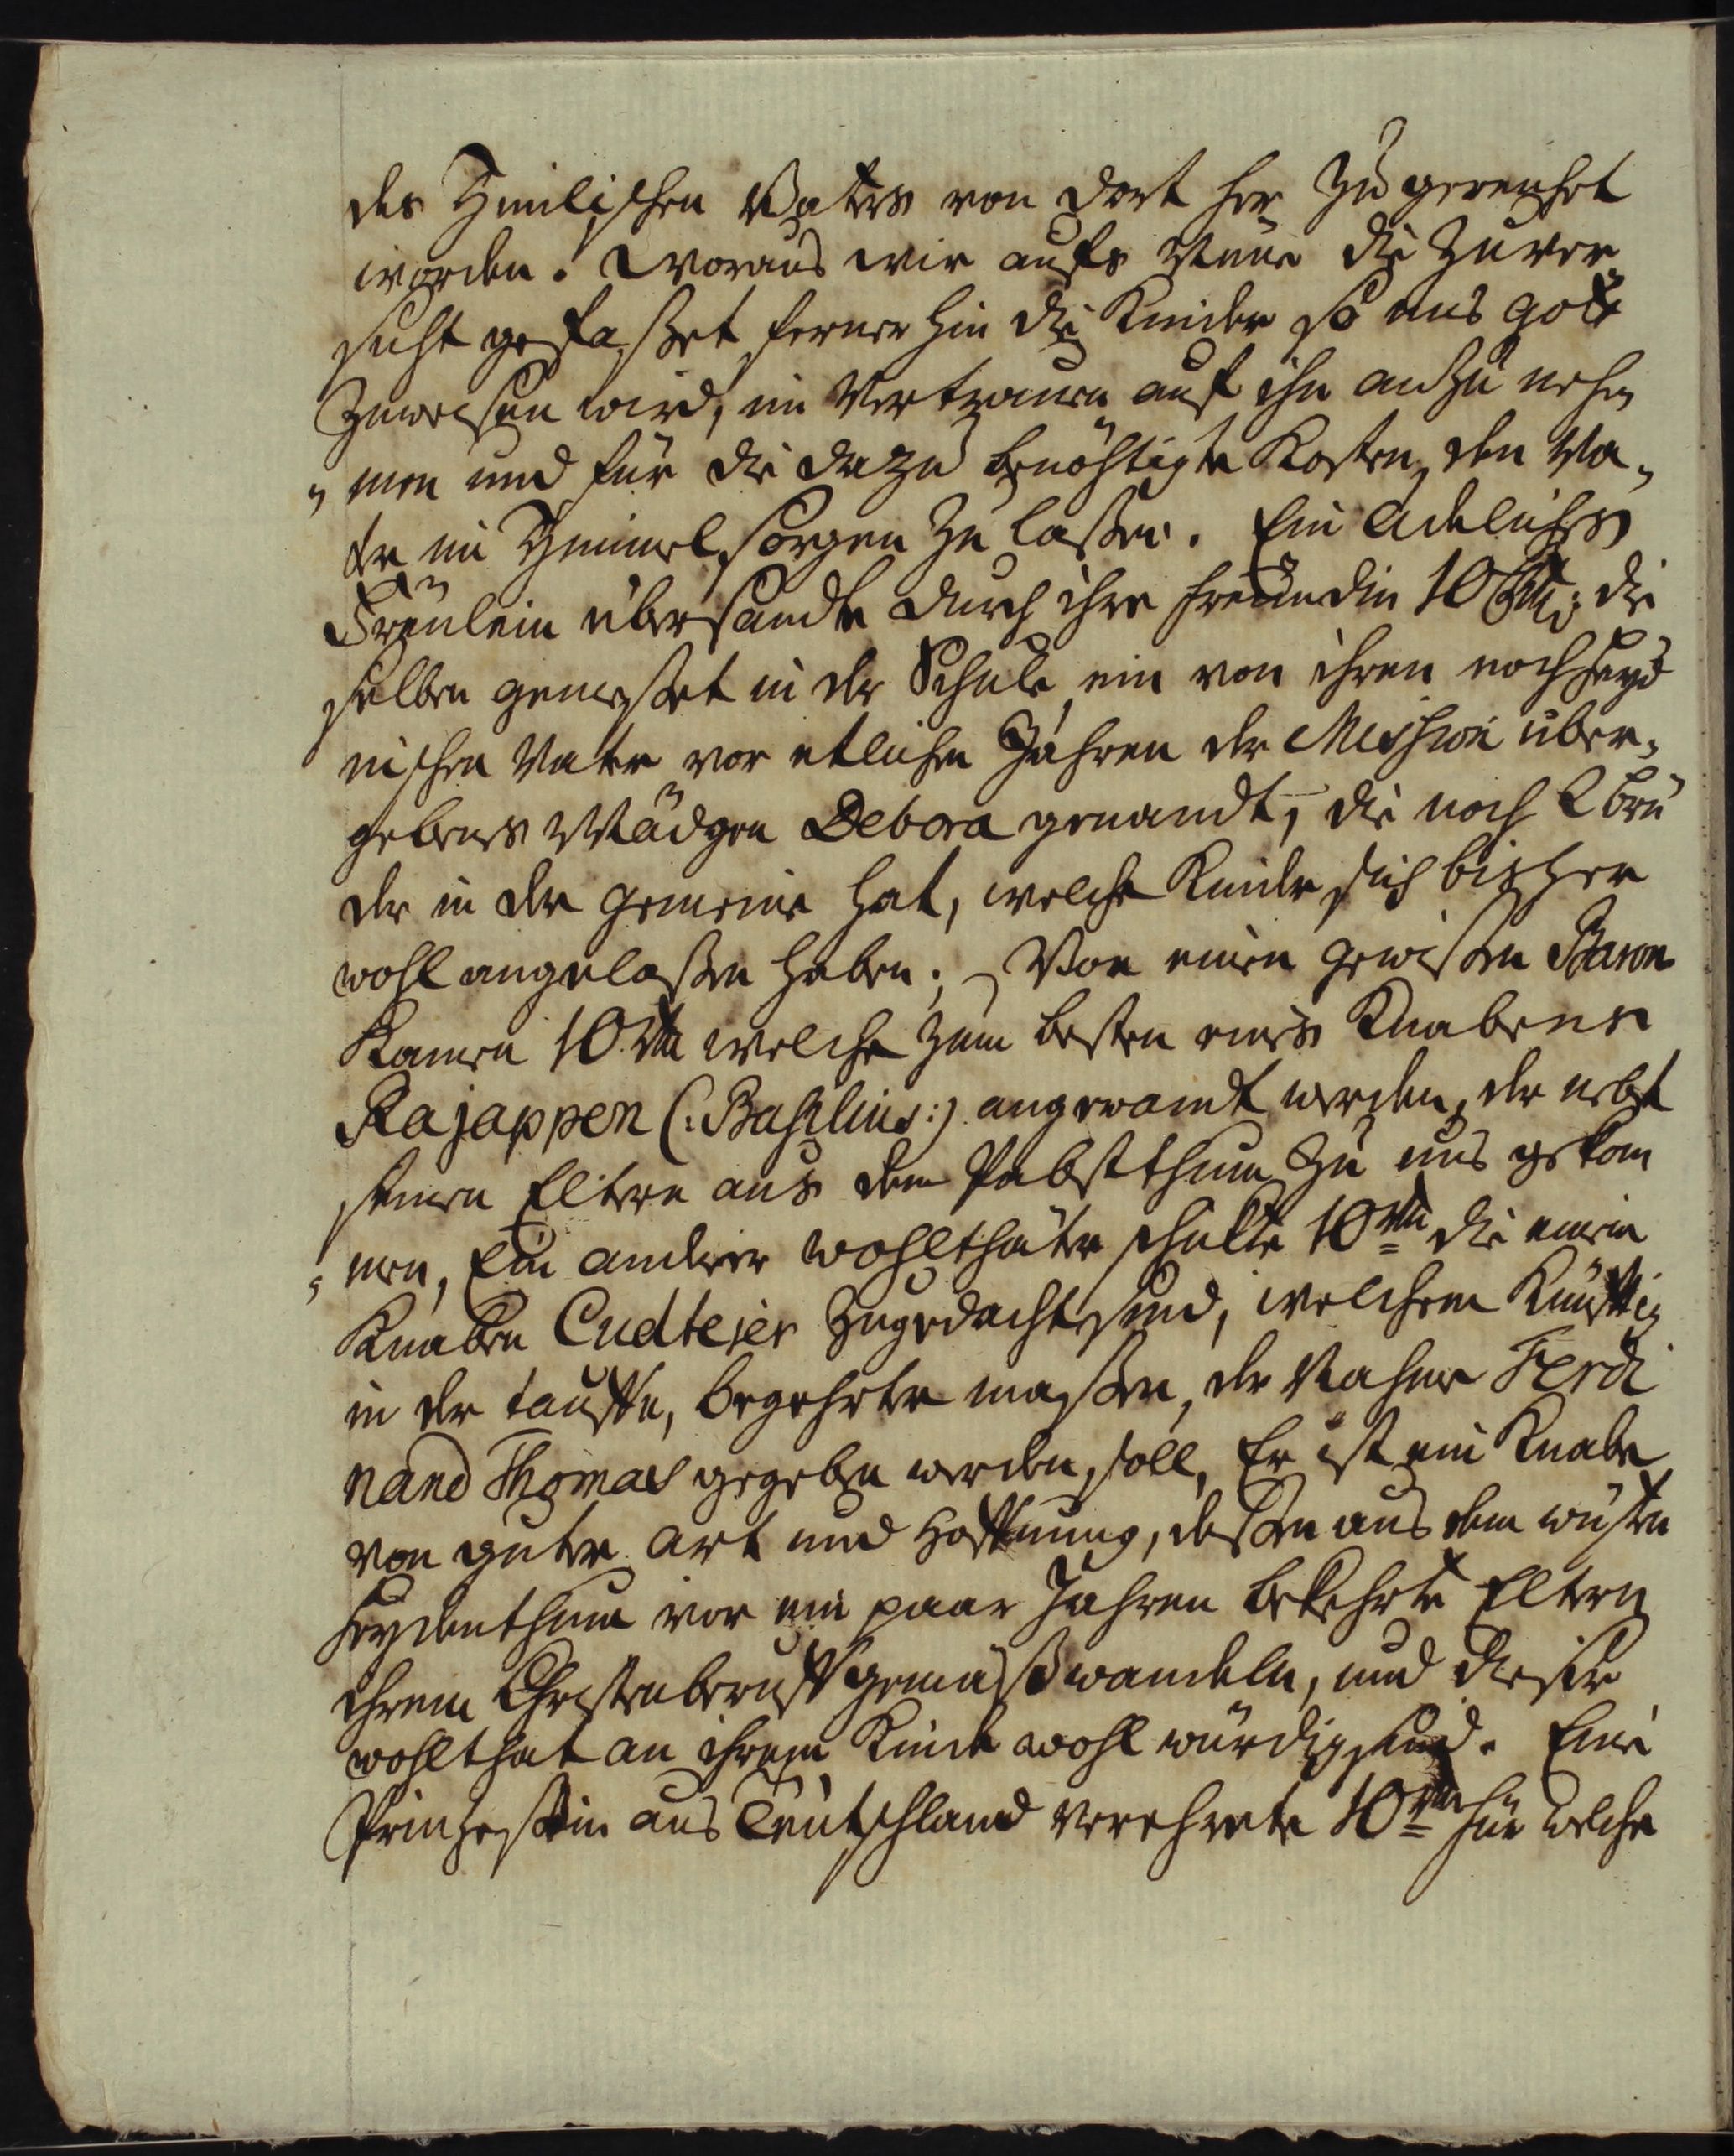 des Himlischen Vaters von dort her zu gereichet
worden. Woraus wir aufs Neue die Zuver
sicht gefaßet ferner hin die Kinder so uns Gott
Zuweisen wird, im Vertrauen auf ihn anzu neh¬
„ men und für die dazu benöhtigte Kosten, den Va¬
ter im Himmel sorgen zu laßen. Ein Adeliches
Freulein übersandte durch ihre Freundin 10 Rthl. die
selben genießet in der Schule, ein von ihren noch heyd
nischen Vater vor etlichen Jahren der Mission über¬
gebenes Mädgen Debora genandt, die noch 2 brü
der in der gemeine hat, welche Kinder sich bisher
wohl angelaßen haben. Von einen gewißen Baron
Kamen 10 rthl welche zum besten eines Knabens
Rajappen (: Basilius :) angewandt werden, der nebst
seinen Eltern aus dem Pabstthum zu uns gekom
„ men, Ein anderer wohlthäter schickte 10 rthl die einem
Knaben Cudteier zugedacht sind, welchem Künfftig
in der tauffe, begehrter maßen, der Nahme Ferdi
nand Thomas gegeben werden soll, Er ist ein Knabe
von guter art und Hoffnung, deßen aus dem wüsten
heydenthum vor ein paar Jahren bekehrte Eltern
ihrem Christenberuff gemäß wandeln, und dieser
wohlthat an ihrem Kinde wohl würdig sind. Eine
Prinzeßin aus Teutschland verehrete 10 rthl für welche